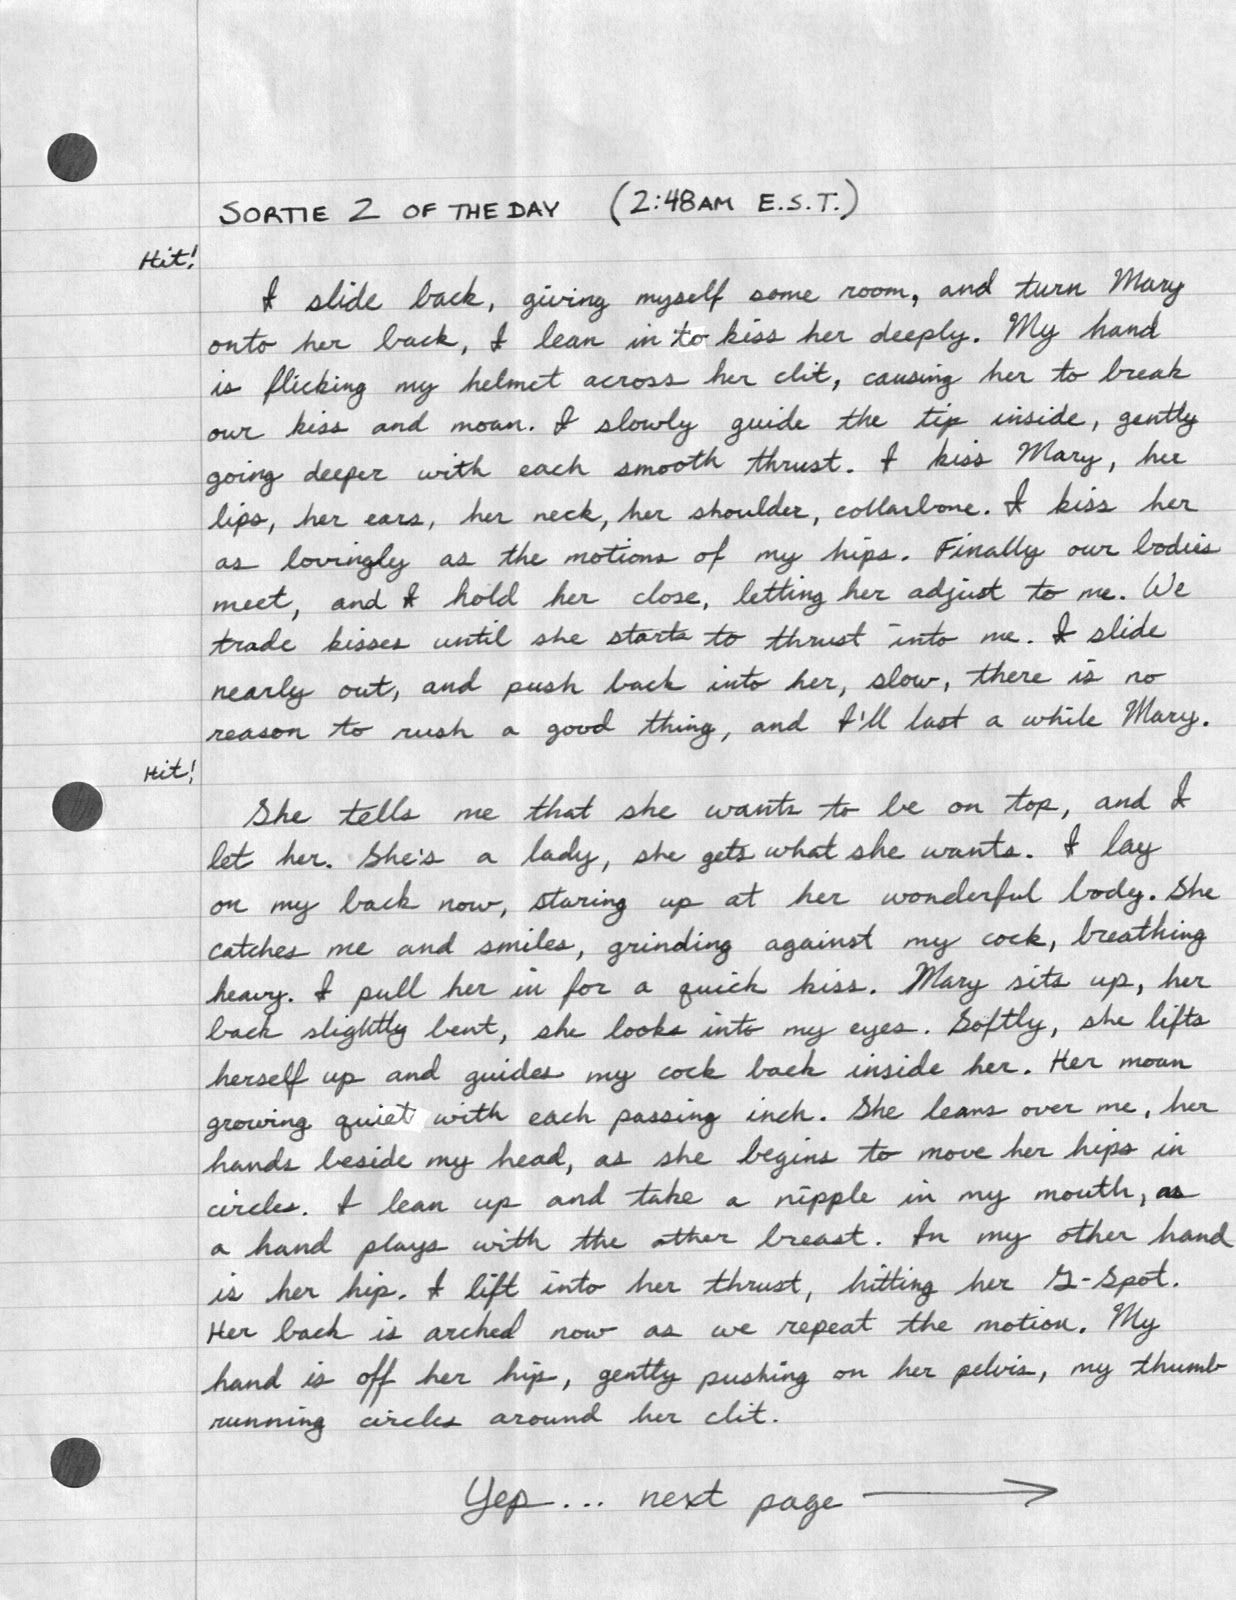 SORTIE 2 OF THE DAY (2:48AM E.S.T.)
Hit!
I slide back, giving myself some room, and turn Mary
onto her back, I lean in to kiss her deeply. My hand
is flicking my helmet across her clit, causing her to break
our kiss and moan. I slowly guide the tip inside, gently
going deeper with each smooth thrust. I kiss Mary, her
lips, her ears, her neck, her shoulder, collarbone. I kiss her
as lovingly as the motions of my hips. Finally our bodies
meet, and I hold her close, letting her adjust to me. We
trade kisses until she starts to thrust into me. I slide
nearly out, and push back into her, slow, there is no
reason to rush a good thing, and I'll last a while Mary.
Hit!
She tells me that she wants to be on top, and I
let her. She's a lady, she gets what she wants. I lay
on my back now, staring up at her wonderful body. She
catches me and smiles, grinding against my cock, breathing
heavy. I pull her in for a quick kiss. Mary sits up, her
back slightly bent, she looks into my eyes. Softly, she lifts
herself up and guides my cock back inside her. Her moan
growing quiet with each passing inch. She leans over me, her
hands beside my head, as she begins to move her hips in
circles. I lean up and take a nipple in my mouth, as
a hand plays with the other breast. In my other hand
is her hip. I lift into her thrust, hitting her G-Spot.
Her back is arched now as we repeat the motion. My
hand is off her hip, gently pushing on her pelvis, my thumb
running circles around her clit.
Yep... next page →